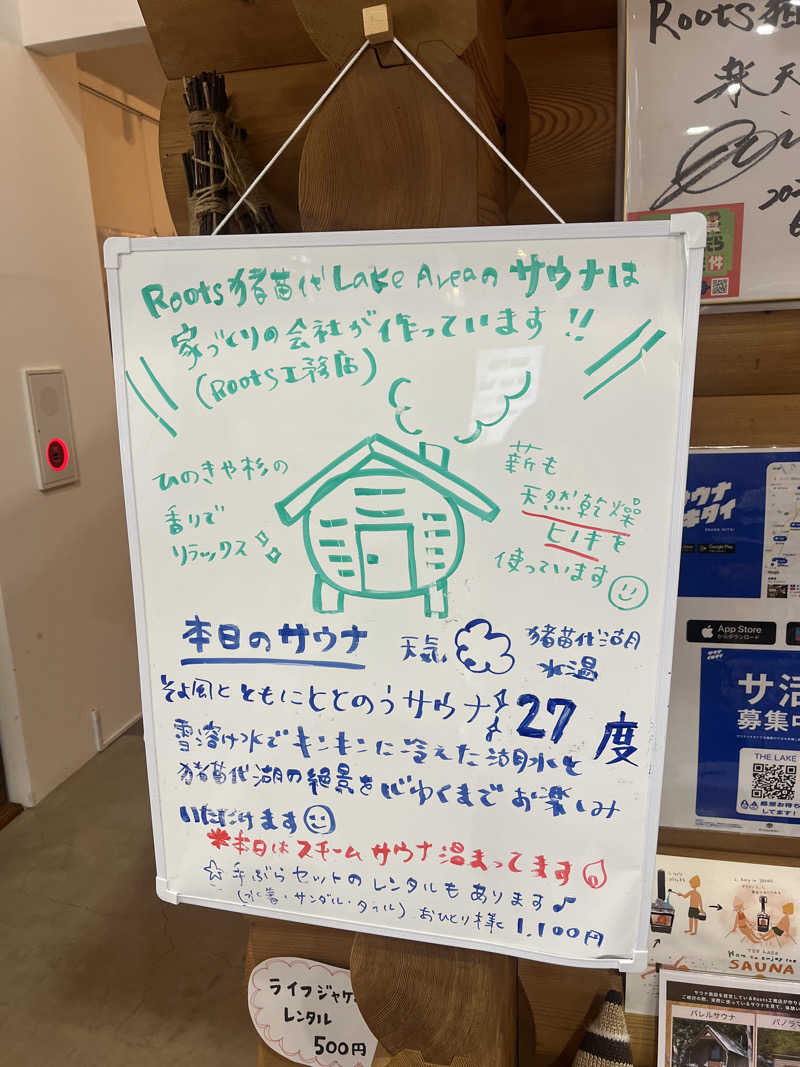 Roots猪苗代Lake Areaのサウナは
家づくりの会社が作っています!!
(Roots工務店)
ひのきや杉の
香りで
リラックス
薪も
天然乾燥
ヒノキを
使っています
本日のサウナ
天気
猪苗代湖
水温
27度
そよ風とともにととのうサウナ
雪溶け水でキンキンに冷えた湖水と
猪苗代湖の絶景を心ゆくまでお楽しみ
いただけます
*本日はスチームサウナ温まってます
☆手ぶらセットのレンタルもあります♪
(水着・サンダル・タオル) おひとり様¥1,100円
ライフジャケ
レンタル
500円
Roots猪
楽天
サウナ
キタイ
App Store
からダウンロード
サ活
募集中
THE LAKE
SAUNA
バレルサウナ
パノラマ